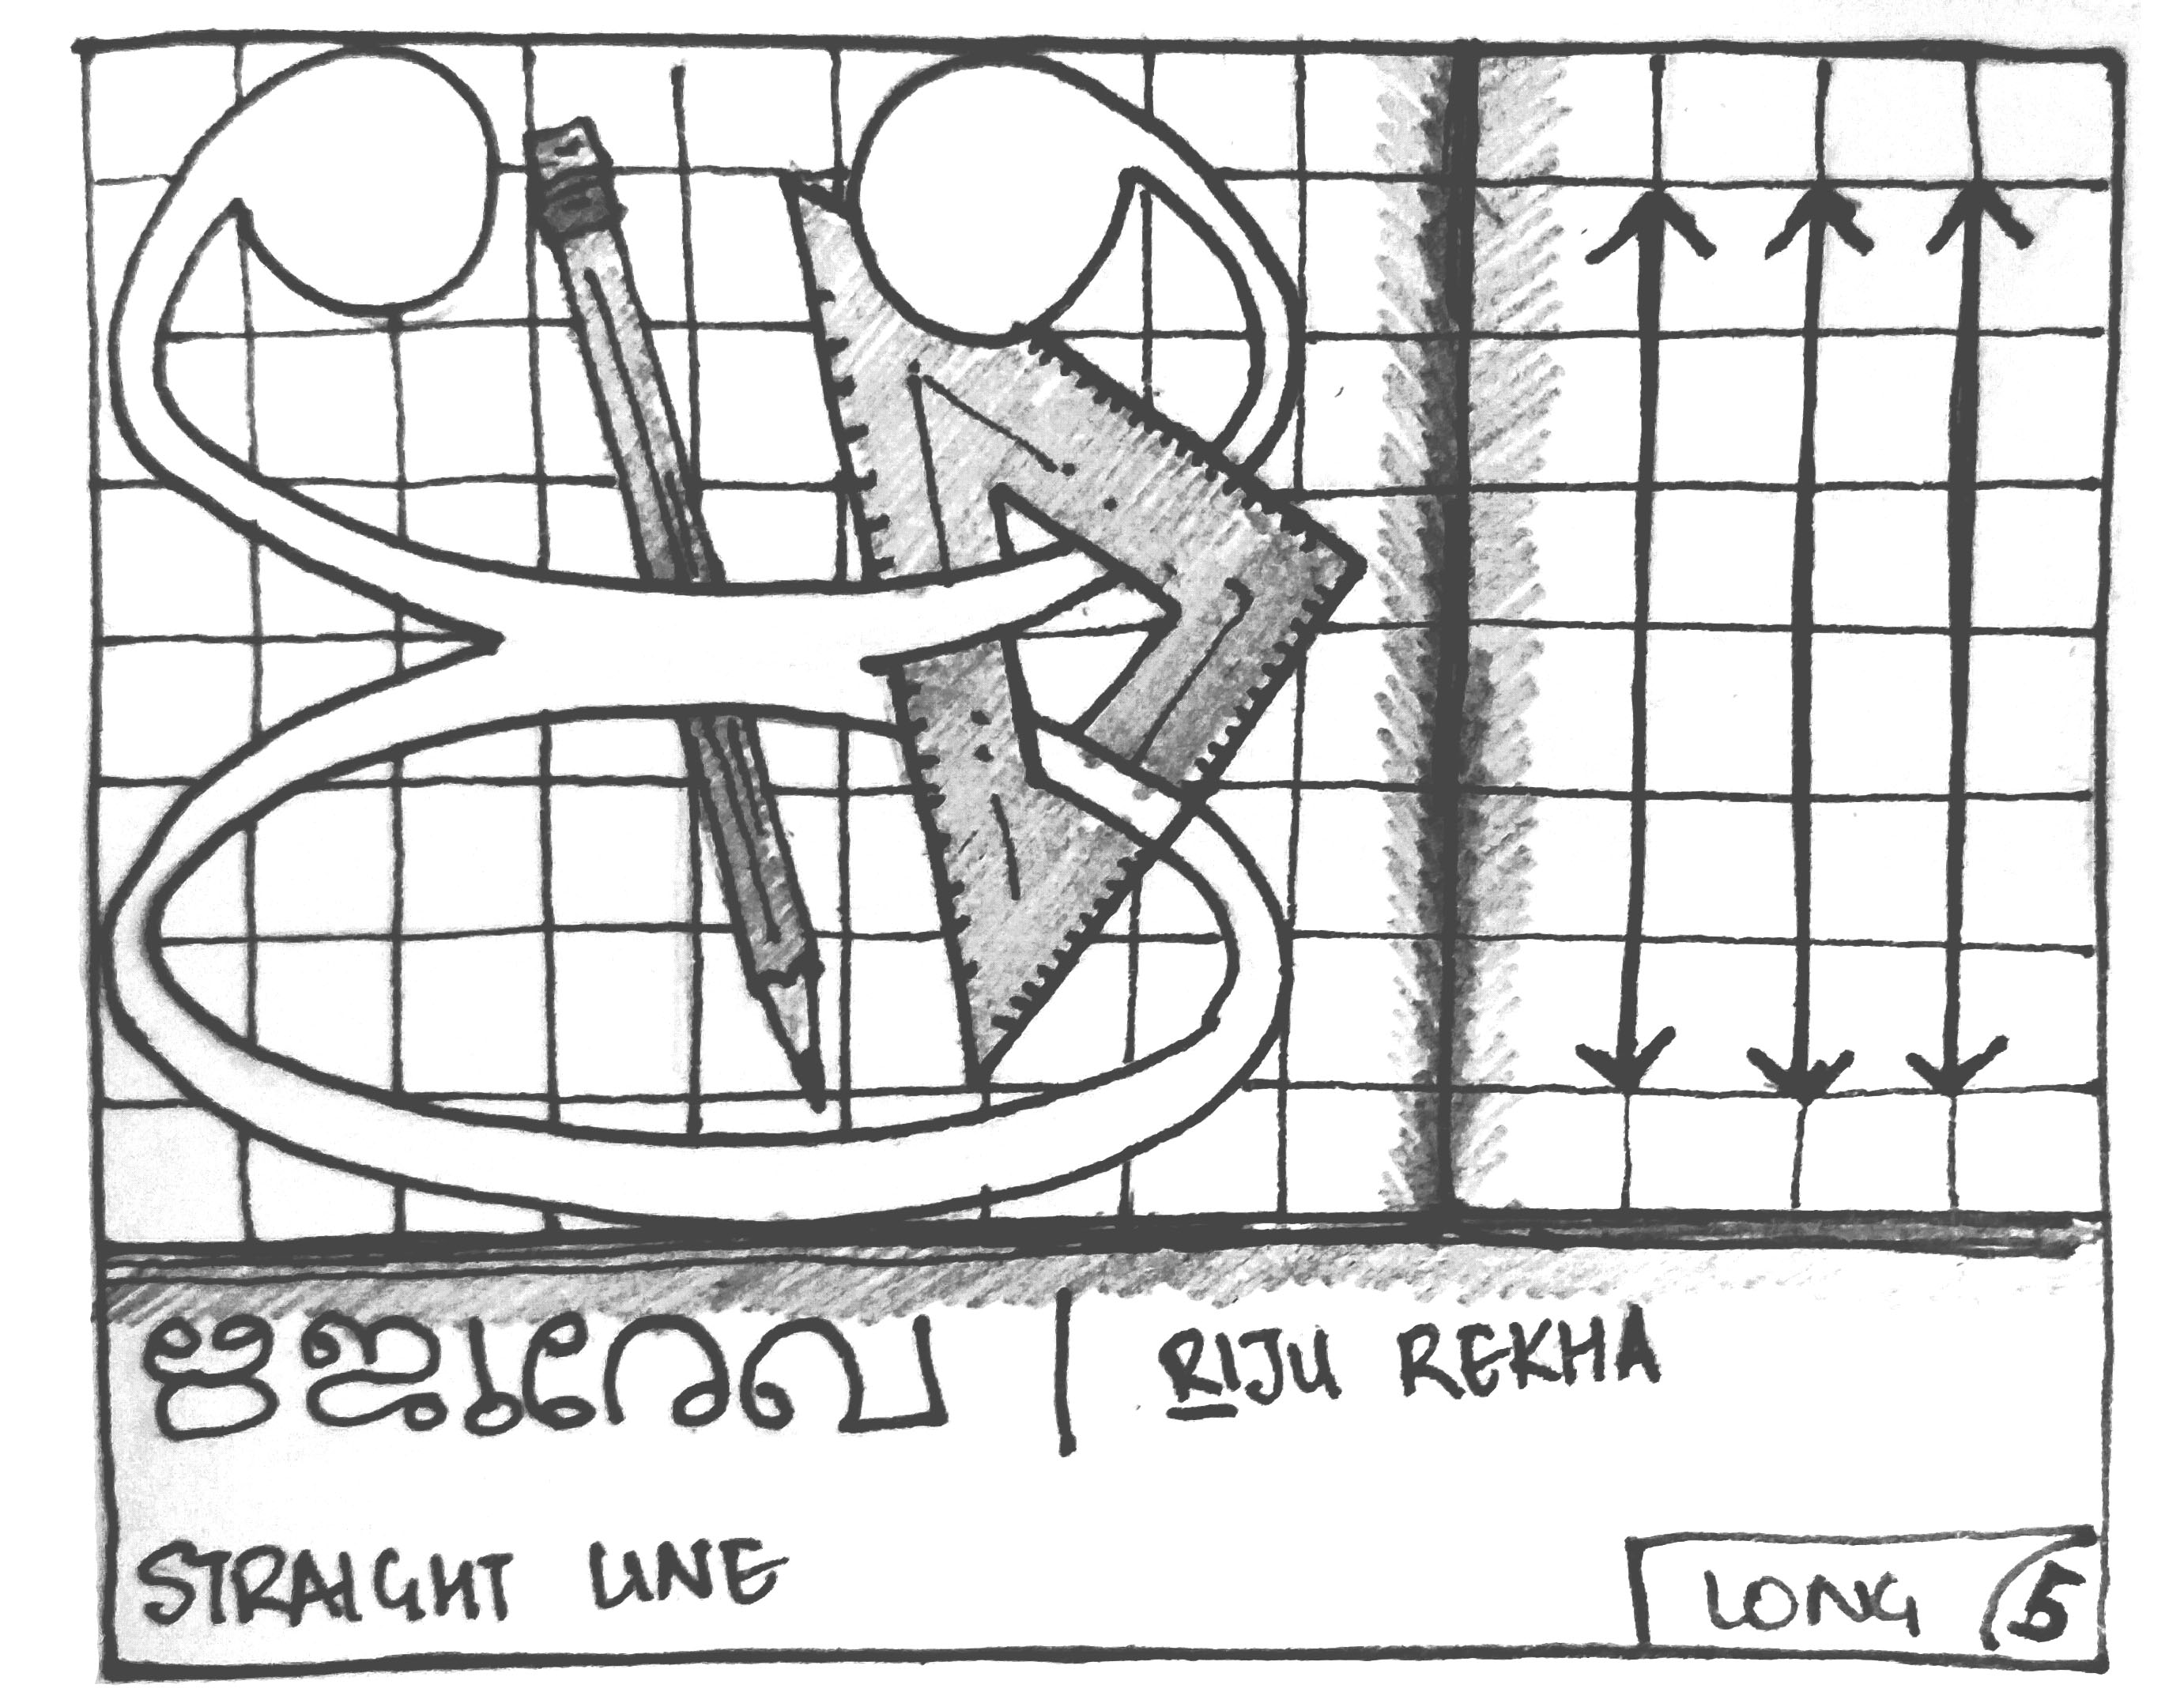 ഋ
ഋജുരേഖ | RIJU REKHA
STRAIGHT LINE
LONG 5